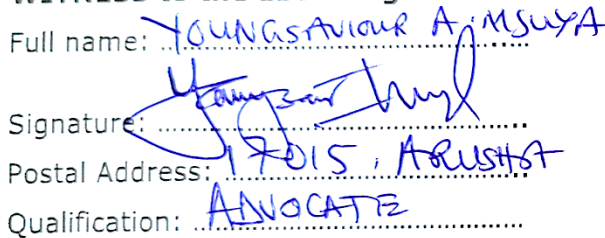 Full name: YOUNGSAVIOUR A. MSUYA
Signature:
Postal Address: 17015, ARUSHA
Qualification: ADVOCATE